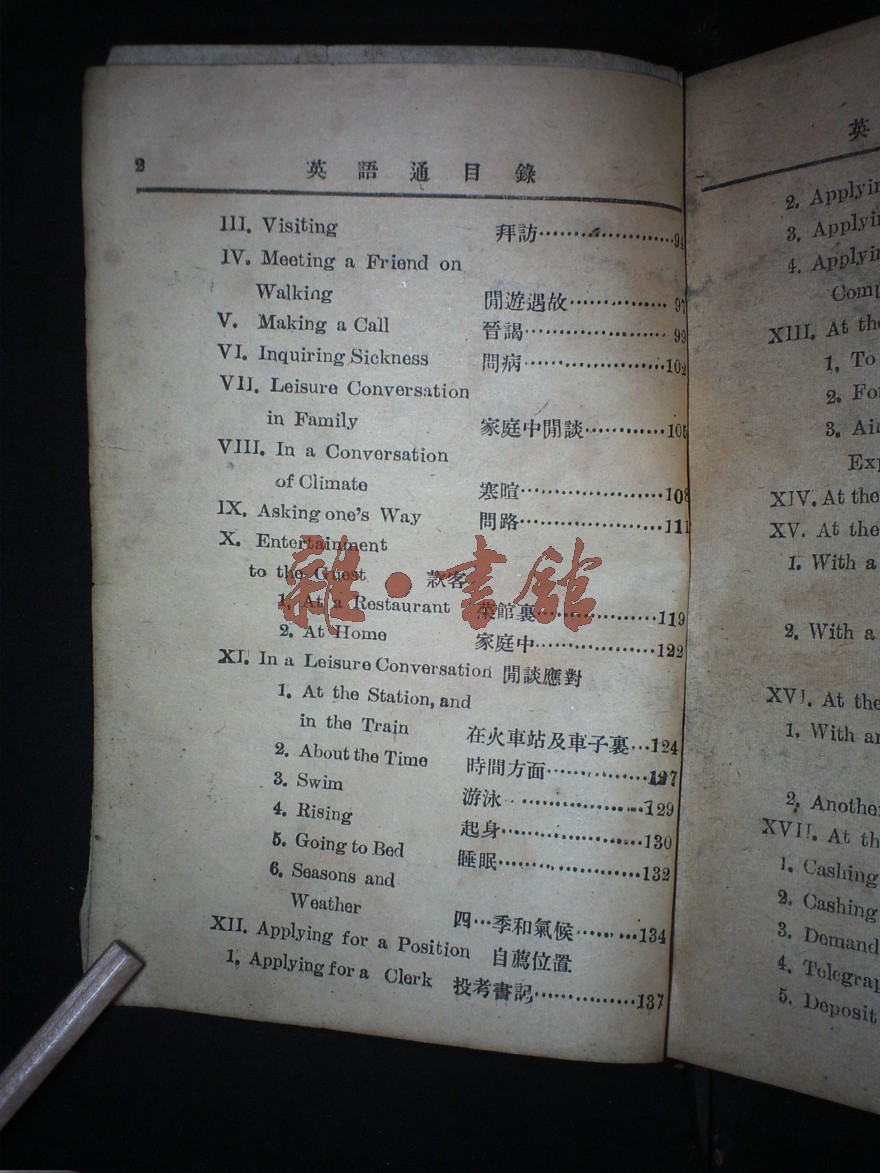 2 英語通目錄
III. Visiting 拜訪
IV. Meeting a Friend on
Walking 閒遊遇故 97
V. Making a Call 晉謁 99
VI. Inquiring Sickness 問病 102
VII. Leisure Conversation
in Family 家庭中閒談 105
VIII. In a Conversation
of Climate 寒暄 108
IX. Asking one's Way 問路 111
X. Entertainment
to the Guest 款客
1. At a Restaurant 菜館裏 119
2. At Home 家庭中 122
XI. In a Leisure Conversation 閒談應對
1. At the Station, and
in the Train 在火車站及車子裏 124
2. About the Time 時間方面 127
3. Swim 游泳 129
4. Rising 起身 130
5. Going to Bed 睡眠 132
6. Seasons and
Weather 四季和氣候 134
XII. Applying for a Position 自薦位置
1. Applying for a Clerk 投考書記 137
雜·書館
英
2. Applyin
3. Applyi
4. Applyin
Comp
XIII. At the
1. To
2. Fo
3. Ai
Exp
XIV. At the
XV. At the
1. With a
2. With a
XVI. At the
1. With an
2. Another
XVII. At th
1. Cashing
2. Cashing
3. Demand
4. Telegrap
5. Deposit